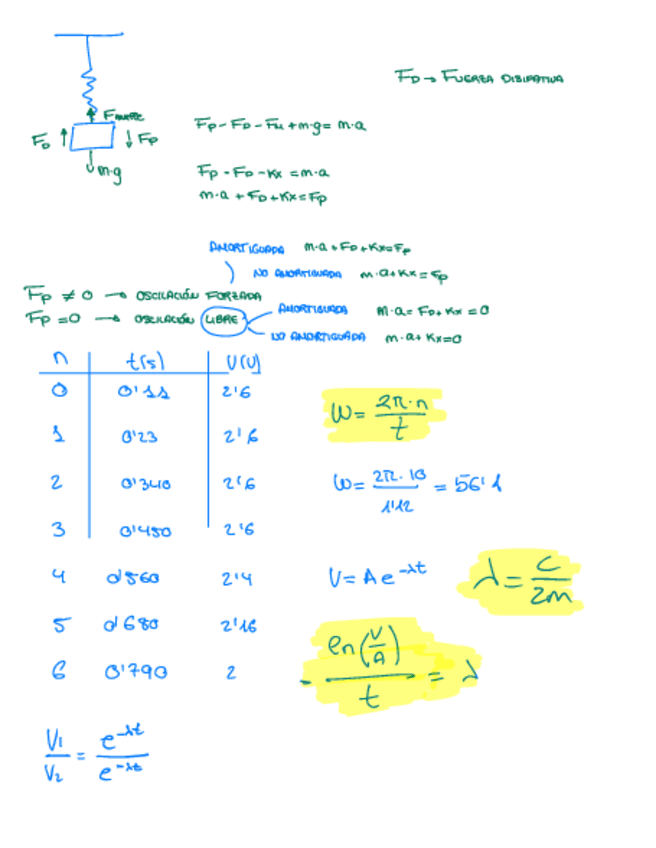 F_D → FUERZA DISIPATIVA
F_muelle
F_D ↑ ↓ F_P
m·g
F_P - F_D - F_M + m·g = m·a
F_P - F_D - Kx = m·a
m·a + F_D + Kx = F_P
AMORTIGUADA m·a + F_D + Kx = F_P
NO AMORTIGUADA m·a + Kx = F_P
F_P ≠ 0 → OSCILACIÓN FORZADA
F_P = 0 → OSCILACIÓN LIBRE
AMORTIGUADA m·a = F_D + Kx = 0
NO AMORTIGUADA m·a + Kx = 0
n t(s) U(V)
0 0'11 2'6
1 0'23 2'6
2 0'340 2'6
3 0'450 2'6
4 0'560 2'4
5 0'680 2'16
6 0'790 2
ω = 2π·n / t
ω = 2π·10 / 1'12 = 56'1
V = A e^-λt
λ = C / 2m
- ln(V/A) / t = λ
V1 / V2 = e^-λt / e^-λt